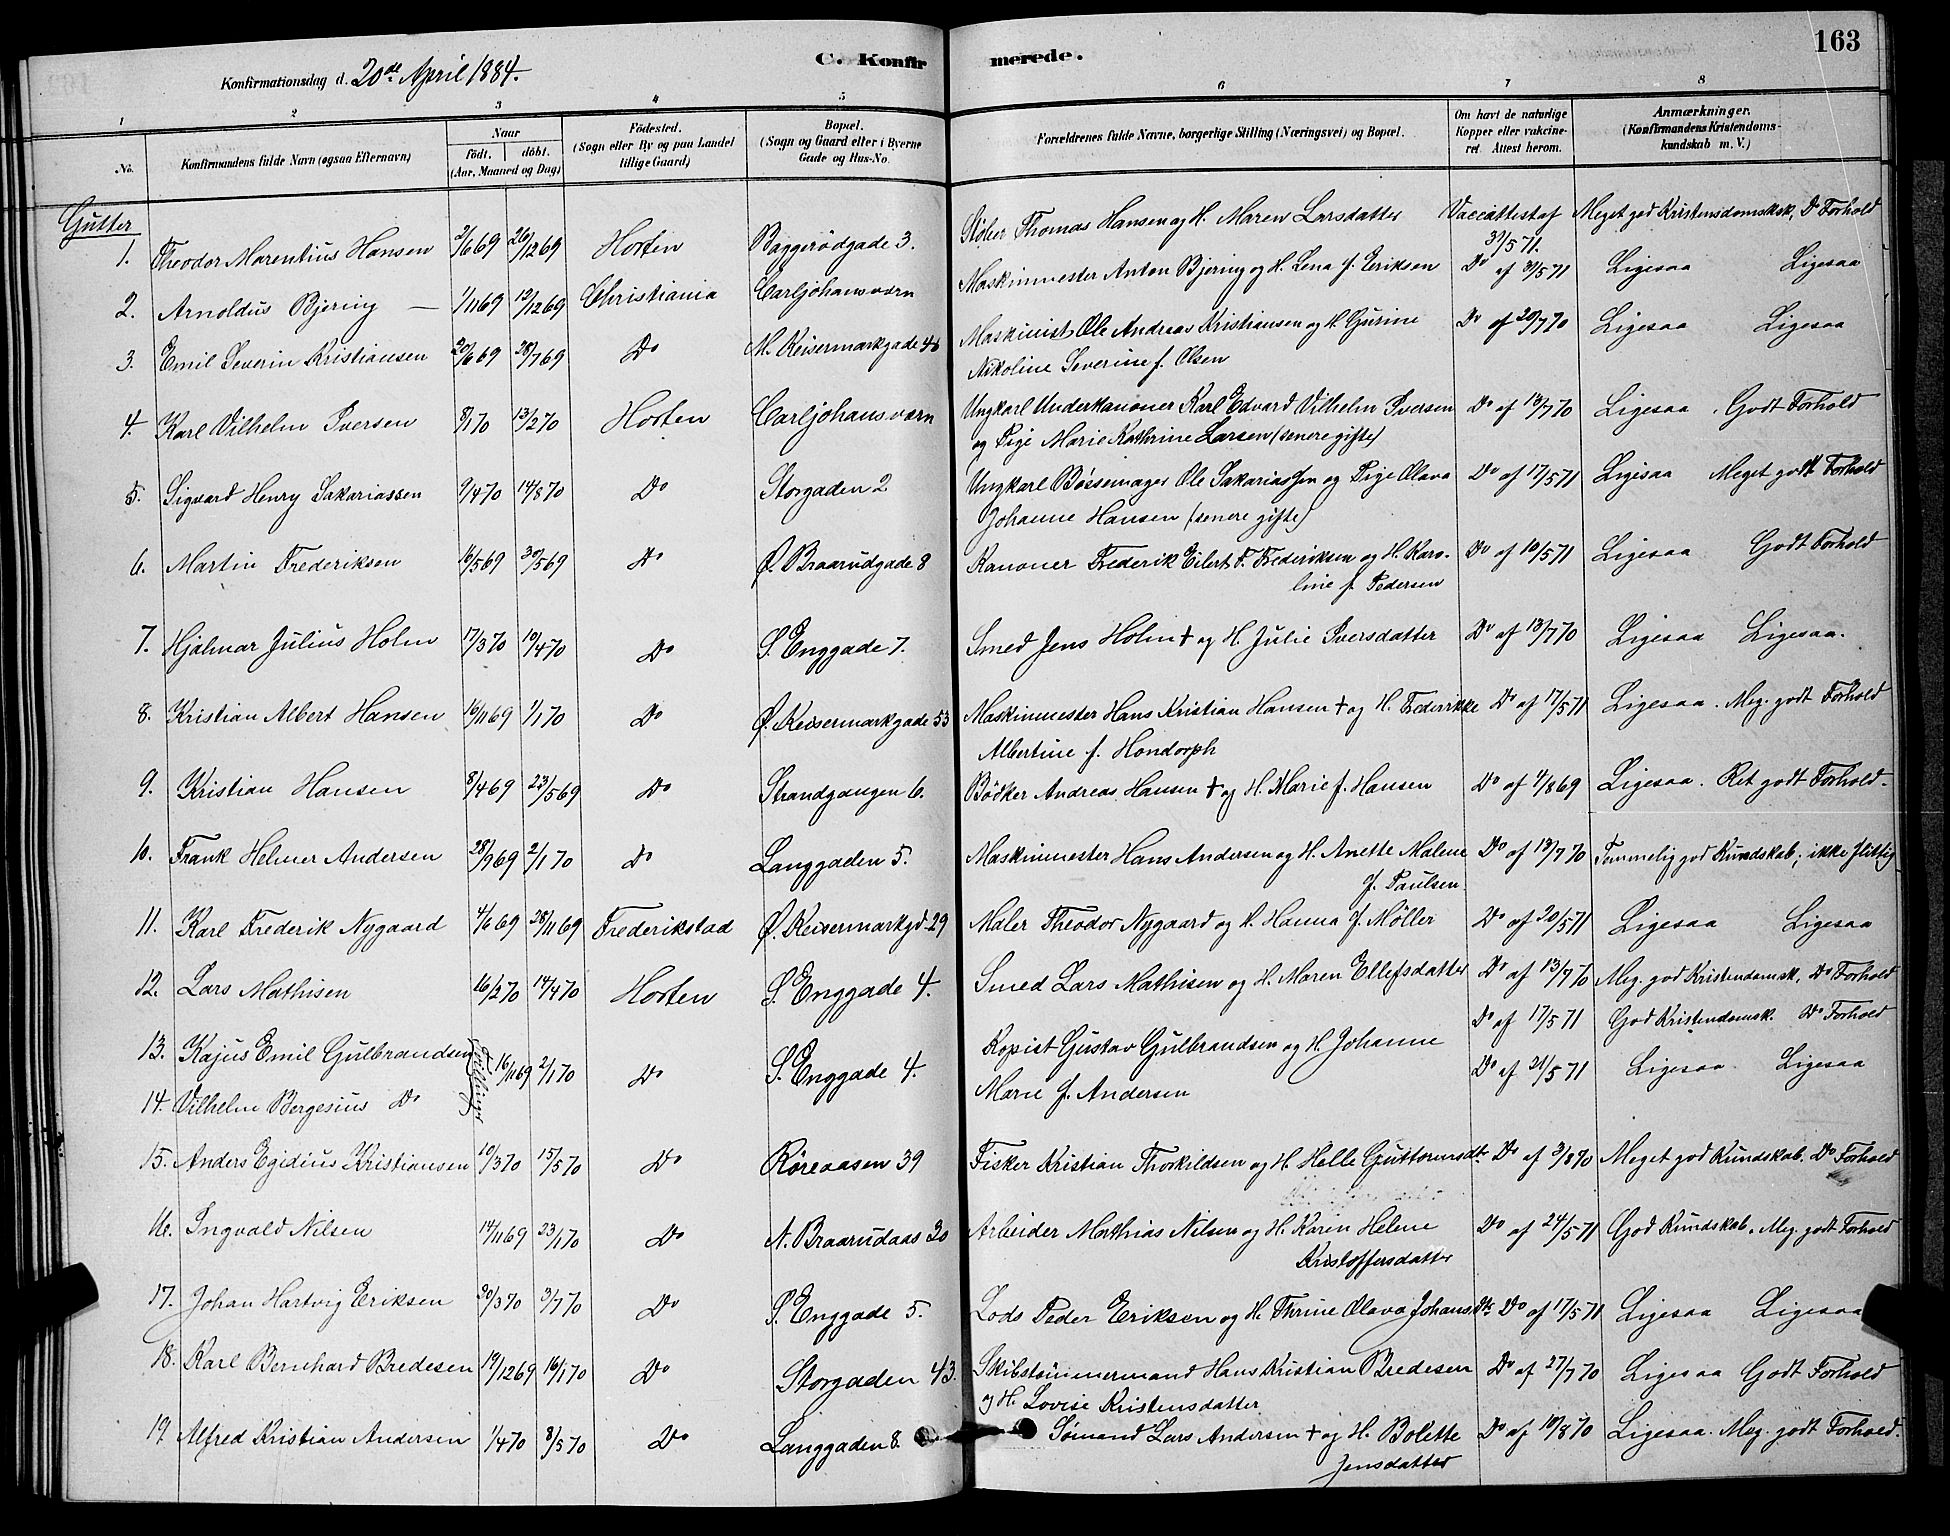 163
C. Konfirmerede.
Konfirmationsdag d. 20de April 1884.
1 2 3 4 5 6 7 8
No. Konfirmandens fulde Navn (ogsaa Efternavn) Naar født. døbt. (Aar, Maaned og Dag) Fødested. (Sogn eller By og paa Landet tillige Gaard) Bopæl. (Sogn og Gaard eller i Byerne Gade og Hus-No. Forældrenes fulde Navne, borgerlige Stilling (Næringsvei) og Bopæl. Om havt de naturlige Kopper eller vakcineret. Attest herom. Anmærkninger. (Konfirmandens Kristendomskundskab m. V.)
Gutter
1. Theodor Marentius Hansen 2/6 69 26/12 69 Horten Baggerødgade 3. Støber Thomas Hansen og H. Maren Larsdatter Vaccattest af 31/5 71. Meget god Kristensdomsksk, Do Forhold
2. Arnoldus Bjering — 1/11 69 12/12 69 Christiania Carljohansværn Maskinmester Anton Bjering og H. Lena f. Eriksen Do af 31/5 71 Ligesaa Ligesaa
3. Emil Severin Kristiansen 20/6 69 28/7 69 Do N. Keisermarkgade 46 Maskinist Ole Andreas Kristiansen og H. Gurine Do af 20/7 70 Ligesaa Ligesaa
Nikoline Severine f. Olsen
4. Karl Vilhelm Iversen 8/1 70 13/2 70 Horten Carljohansværn Ungkarl Underkanoner Karl Edvard Vilhelm Iversen Do af 13/7 70 Ligesaa . Godt Forhold
og Pige Marie Kathrine Larsen (senere gifte)
5. Sigvard Henry Sakariassen 9/4 70 14/8 70 Do Storgaden 2 Ungkarl Bøssemager Ole Sakariassen og Pige Olava Do af 17/5 71 Ligesaa Meget godt Forhold
Johanne Hansen (senere gifte)
6. Martin Frederiksen 16/5 69 30/5 69 Do Ø. Braarudgade 8 Kanoner Frederik Eilert F. Frederiksen og H. Karo- Do af 10/5 71 Ligesaa Godt Forhold
line f. Pedersen
7. Hjalmar Julius Holm 17/3 70 10/4 70 Do S. Enggade 7. Smed Jens Holm + og H. Julie Iversdatter Do af 13/7 70 Ligesaa Ligesaa.
8. Kristian Albert Hansen 16/11 69 1/1 70 Do Ø. Keisermarkgade 53 Maskinmester Hans Kristian Hansen + og H. Frederikke Do af 17/5 71 Ligesaa . Meg. godt Forhold
Albertine f. Hondorph
9. Kristian Hansen 8/4 69 23/5 69 Do Strandgangen 6. Bødker Andreas Hansen + og H. Marie f. Hansen Do af 1/8 69 Ligesaa . Ret godt Forhold.
10. Frank Helmer Andersen 28/9 69 2/1 70 Do Langgaden 5. Maskinmester Hans Andersen og H. Anette Malene Do af 13/7 70 Temmelig god Kundskab; ikke flittig
f. Paulsen
11. Karl Frederik Nygaard 4/6 69 28/11 69 Frederikstad Ø. Keisermarkgd. 29 Maler Theodor Nygaard og H. Hanna f. Möller Do af 20/5 71 Ligesaa Ligesaa
12. Lars Mathisen 16/2 70 14/4 70 Horten S. Enggade 4. Smed Lars Mathisen og H. Maren Ellefsdatter Do af 13/7 70 Meg. god Kristendomsk, Do Forhold
13. Kajus Emil Gulbrandsen Tvillinger 16/11 69 2/1 70 Do S. Enggade 4. Kopist Gustav Gulbrandsen og H. Johanne Do af 17/5 71 God Kristendomsk. Do Forhold
14. Vilhelm Bergesius Do Marie f. Andersen Do af 21/5 71 Ligesaa Ligesaa
15. Anders Egidius Kristiansen 10/3 70 15/5 70 Do Röreaasen 39 Fisker Kristian Thorkildsen og H. Helle Guttormsdt. Do af 3/8 70 Meget god Kundskab. Do Forhold
16. Ingvald Nilsen 14/11 69 23/1 70 Do N. Braarudaas 30 Arbeider Mathias Nilsen og H. Karen Helene Do af 24/5 71 God Kundskab. Meg. godt Forhold
Kristoffersdatter
17. Johan Hartvig Eriksen 30/3 70 3/7 70 Do S. Enggade 5. Lods Peder Eriksen og H. Thrine Olava Johansdt. Do af 17/5 71 Ligesaa Ligesaa
18. Karl Bernhard Bredesen 19/12 69 16/1 70 Do Storgaden 43. Skibstømmermand Hans Kristian Bredesen Do af 27/7 70 Ligesaa Godt Forhold
og H. Lovise Kristensdatter
19. Alfred Kristian Andersen 1/4 70 8/5 70 Do Langgaden 8. Sømand Lars Andersen + og H. Bolette Do af 10/8 70 Ligesaa. Meg. godt Forhold.
Jensdatter